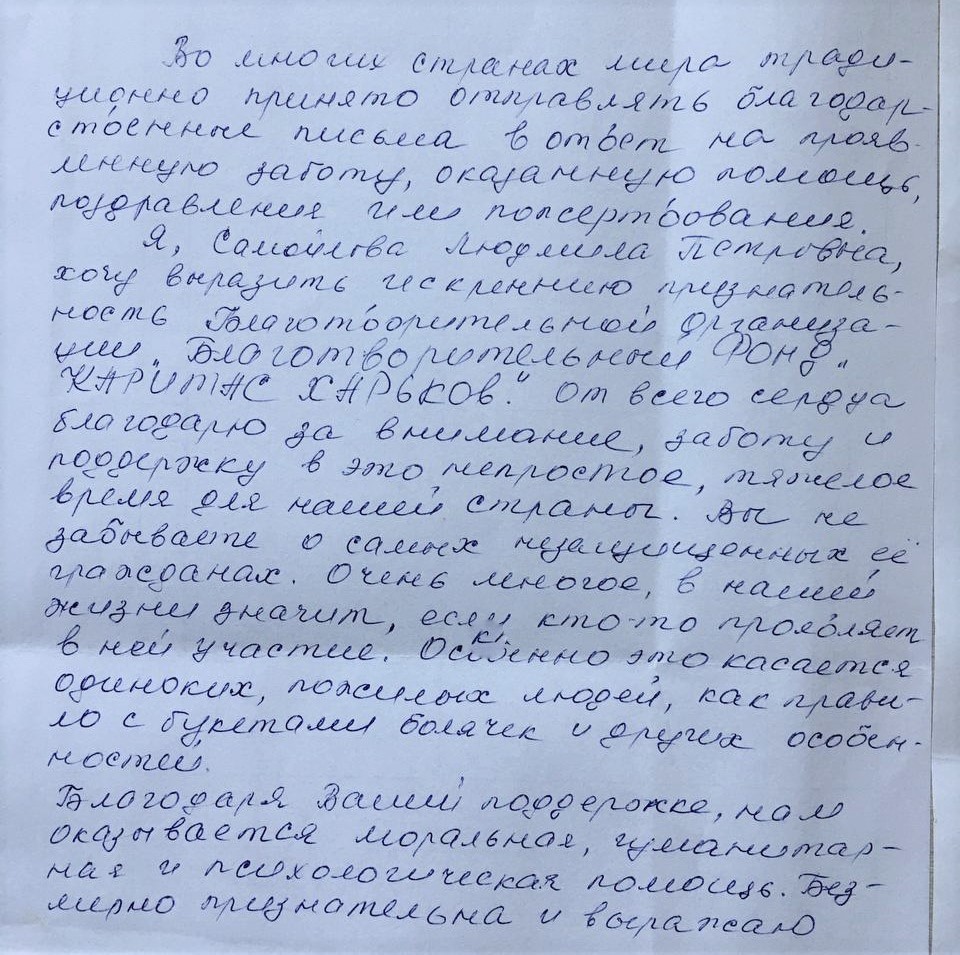 Во многих странах мира тради-
ционно принято отправлять благодар-
ственные письма в ответ на прояв-
ленную заботу, оказанную помощь,
поздравления или пожертвования.
Я, Самойлова Людмила Петровна,
хочу выразить искреннюю признатель-
ность Благотворительной организа-
ции „Благотворительный Фонд „
КАРИТАС ХАРЬКОВ". От всего сердца
благодарю за внимание, заботу и
поддержку в это непростое, тяжелое
время для нашей страны. Вы не
забываете о самых незащищенных её
гражданах. Очень многое, в нашей
жизни значит, если кто-то проявляет
в ней участие. Особенно это касается
одиноких, пожилых людей, как прави-
ло с букетами болячек и других особен-
ностей.
Благодаря Вашей поддержке, нам
оказывается моральная, гуманитар-
ная и психологическая помощь. Без-
мерно признательна и выражаю